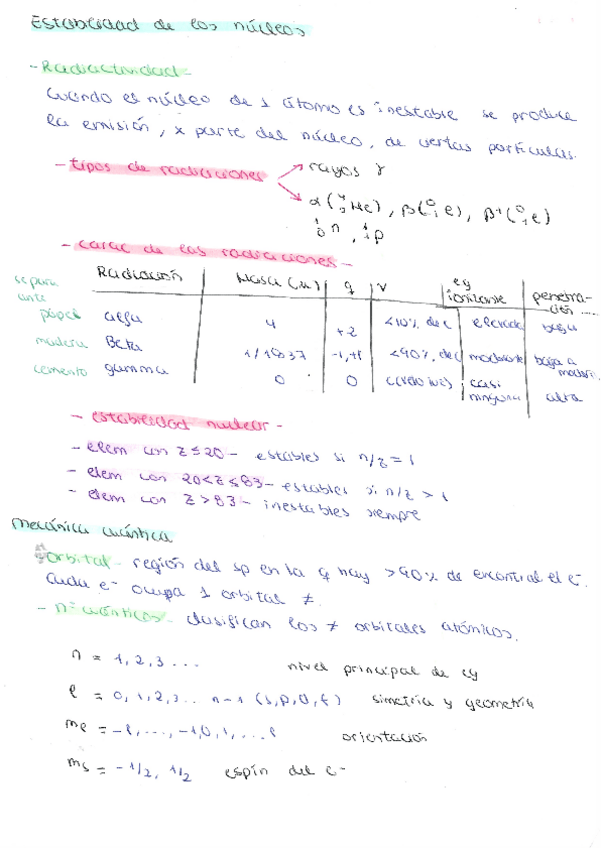 Estabilidad de los núcleos
- Radiactividad -
Cuando el núcleo de 1 átomo es inestable se produce
la emisión, x parte del núcleo, de ciertas partículas.
- tipos de radiaciones → rayos γ
→ α(⁴₂He), β(⁰₋₁e), β⁺(⁰₊₁e)
¹₀n, ¹₁p
- carac de las radiaciones -
se para ante | Radiación | Masa (u) | q | v | eg ionizante | penetra-ción ...
papel | alfa | 4 | +2 | <10% de c | elevada | baja
madera | Beta | 1/1837 | -1,+1 | <90% de c | moderante | baja a moder.
cemento | gamma | 0 | 0 | c (velo luz) | casi ninguna | alta
- estabilidad nuclear -
- elem con Z ≤ 20 - estables si n/z = 1
- elem con 20<Z≤83 - estables si n/z > 1
- elem con Z > 83 - inestables siempre
Mecánica cuántica
orbital - región del sp en la q hay >90% de encontrar el e⁻.
Cada e⁻ ocupa 1 orbital ≠.
- nº cuánticos - clasifican los ≠ orbitales atómicos.
n = 1, 2, 3 ... nivel principal de eg
l = 0, 1, 2, 3 ... n-1 (s, p, d, f) simetría y geometría
ml = -l, ..., -1, 0, 1, ... l orientación
ms = -1/2, 1/2 espín del e⁻